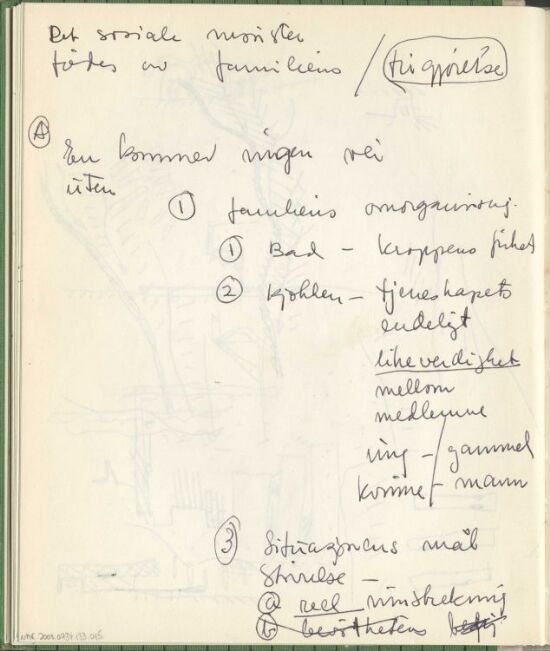 Det sosiale mønster
fødes av familiens / frigjørelse
A
En kommer ingen vei
uten
1 familiens omorganisering.
1 Bad - kroppens frihet
2 Kjøkken - tjenerskapets
endeligt
likeverdighet
mellom
medlemmene
ung - gammel
kvinne - mann
3 Situasjonens mål
Størrelse -
a reell innskrenkning
b bevisstheten
NMK.2005.0934.133.015